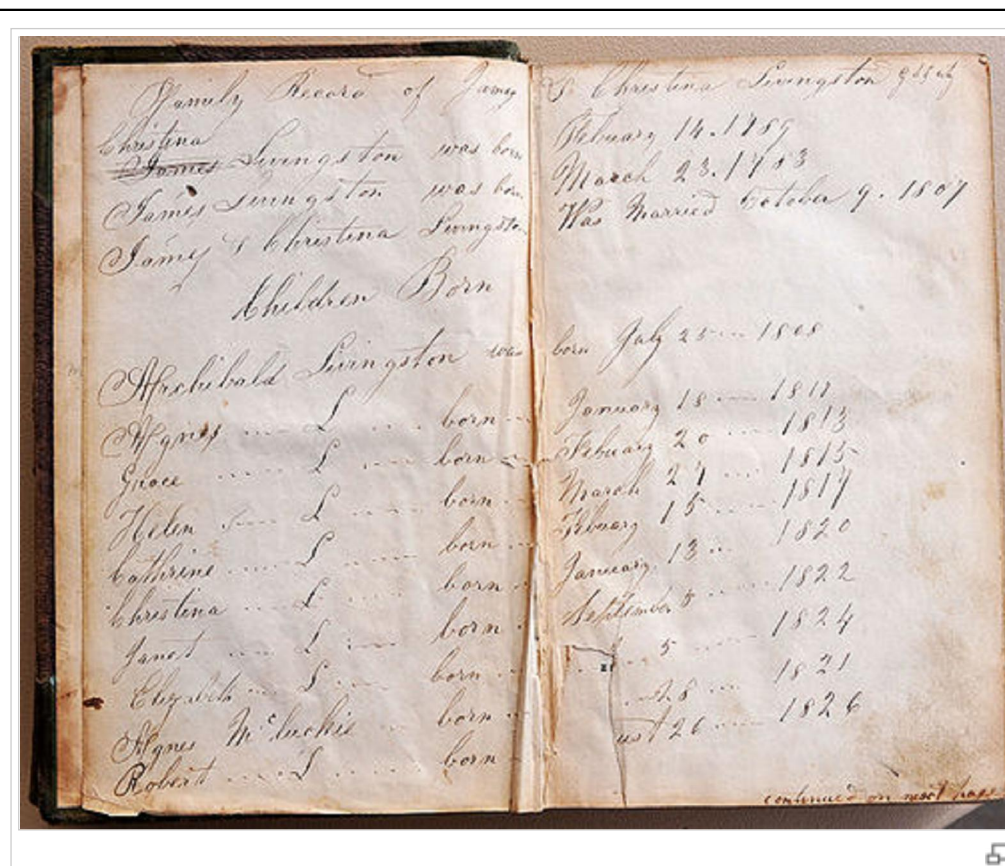 Family Record of James & Christina Livingston
Christina
James Livingston was born Febuary 14. 1789
James Livingston was born March 23. 1783
James & Christina Livingston Was Married October 9. 1807
Children Born
Archibald Livingston was born July 25 1808
Agnes L born January 18 1811
Grace L born Febuary 20 1813
Helen L born March 27 1815
Cathrine L born Febuary 15 1817
Christina L born January 13 1820
Janet L born September 5 1822
Elizabeth L born 5 1824
Agnes McLuckie born 28 1821
Robert L born ust 26 1826
continued on next page